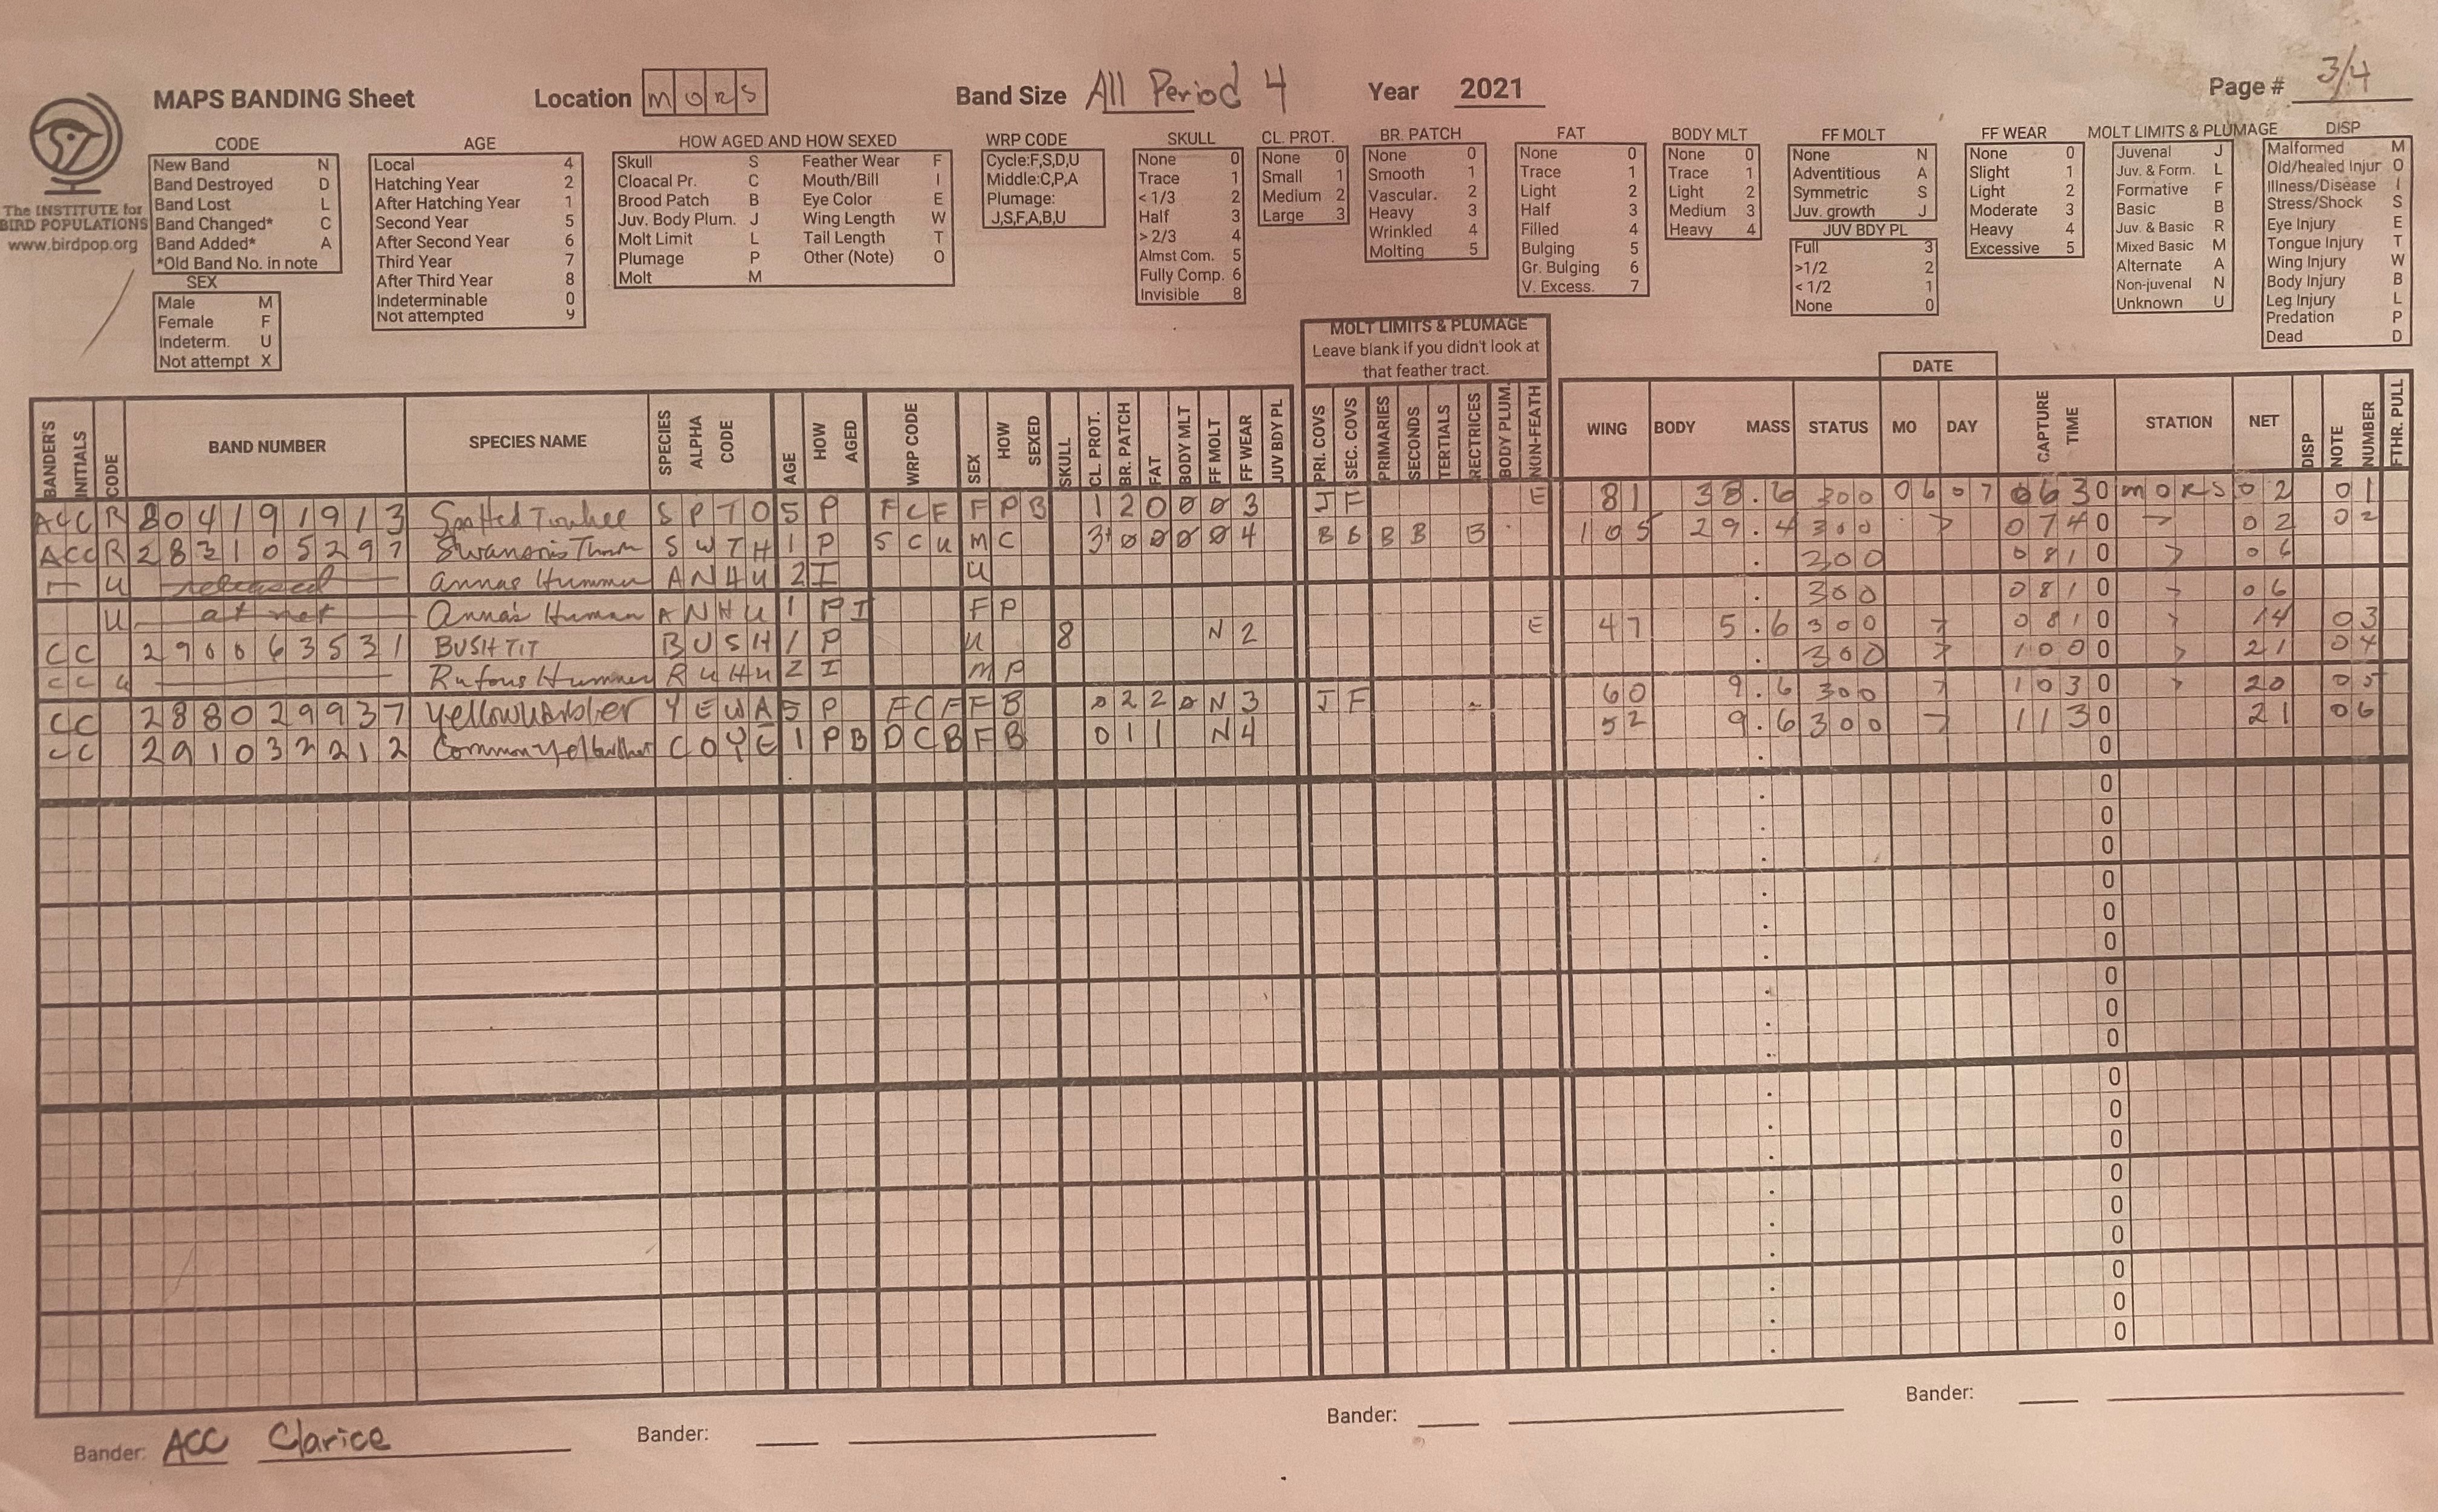 MAPS BANDING Sheet Location MORS Band Size All Period 4 Year 2021 Page # 3/4
The INSTITUTE for
BIRD POPULATIONS
www.birdpop.org
CODE
New Band N
Band Destroyed D
Band Lost L
Band Changed* C
Band Added* A
*Old Band No. in note
SEX
Male M
Female F
Indeterm. U
Not attempt X
AGE
Local 4
Hatching Year 2
After Hatching Year 1
Second Year 5
After Second Year 6
Third Year 7
After Third Year 8
Indeterminable 0
Not attempted 9
HOW AGED AND HOW SEXED
Skull S Feather Wear F
Cloacal Pr. C Mouth/Bill I
Brood Patch B Eye Color E
Juv. Body Plum. J Wing Length W
Molt Limit L Tail Length T
Plumage P Other (Note) O
Molt M
WRP CODE
Cycle:F,S,D,U
Middle:C,P,A
Plumage:
J,S,F,A,B,U
SKULL
None 0
Trace 1
< 1/3 2
Half 3
> 2/3 4
Almst Com. 5
Fully Comp. 6
Invisible 8
CL. PROT.
None 0
Small 1
Medium 2
Large 3
BR. PATCH
None 0
Smooth 1
Vascular. 2
Heavy 3
Wrinkled 4
Molting 5
FAT
None 0
Trace 1
Light 2
Half 3
Filled 4
Bulging 5
Gr. Bulging 6
V. Excess. 7
BODY MLT
None 0
Trace 1
Light 2
Medium 3
Heavy 4
FF MOLT
None N
Adventitious A
Symmetric S
Juv. growth J
JUV BDY PL
Full 3
>1/2 2
< 1/2 1
None 0
FF WEAR
None 0
Slight 1
Light 2
Moderate 3
Heavy 4
Excessive 5
MOLT LIMITS & PLUMAGE
Juvenal J
Juv. & Form. L
Formative F
Basic B
Juv. & Basic R
Mixed Basic M
Alternate A
Non-juvenal N
Unknown U
DISP
Malformed M
Old/healed Injur O
Illness/Disease I
Stress/Shock S
Eye Injury E
Tongue Injury T
Wing Injury W
Body Injury B
Leg Injury L
Predation P
Dead D
MOLT LIMITS & PLUMAGE
Leave blank if you didn't look at
that feather tract.
DATE
BANDER'S INITIALS CODE BAND NUMBER SPECIES NAME SPECIES ALPHA CODE AGE HOW AGED WRP CODE SEX HOW SEXED SKULL CL. PROT. BR. PATCH FAT BODY MLT FF MOLT FF WEAR JUV BDY PL PRI. COVS SEC. COVS PRIMARIES SECONDS TERTIALS RECTRICES BODY PLUM. NON-FEATH WING BODY MASS STATUS MO DAY CAPTURE TIME STATION NET DISP NOTE NUMBER FTHR. PULL
ACC R 804191913 Spotted Towhee SPTO 5 P FCF F PB 1 2 0 0 0 3 J F E 81 38.6 300 06 07 0630 MORS 02 01
ACC R 283105297 Swanson's Thrush SWTH 1 P SCU M C 3 0 0 0 0 4 B B B B B 105 29.4 300 0740 02 02
U released annas Hummer ANHU 2 I U 200 0810 06
U at net Anna's Humman ANHU 1 PI F P 300 0810 06
CC 290063531 BUSHTIT BUSH 1 P U 8 N 2 E 47 5.6 300 7 0810 14 03
CC U Rufous Hummer RUHU 2 I M P 300 7 1000 21 04
CC 288029937 Yellow Warbler YEWA 5 P FCF F B 0 2 2 0 N 3 J F 60 9.6 300 7 1030 20 05
CC 291032212 Common Yellowthroat COYE 1 PB DCB F B 0 1 1 N 4 52 9.6 300 7 1130 21 06
0
0
0
0
0
0
0
0
0
0
0
0
0
0
0
0
0
0
0
Bander: ACC Clarice Bander: Bander: Bander: